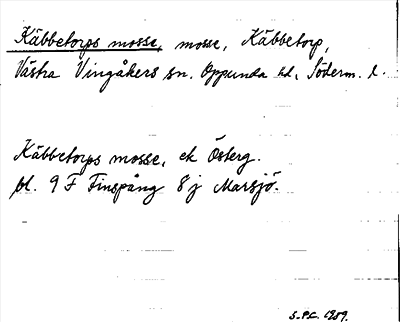 Käbbetorps mosse, mosse, Käbbetorp,
Västra Vingåkers sn. Oppunda hd, Söderm. l.
Käbbetorps mosse, ek Österg.
bl. 9 F Finspång 8 j Marsjö.
1989.